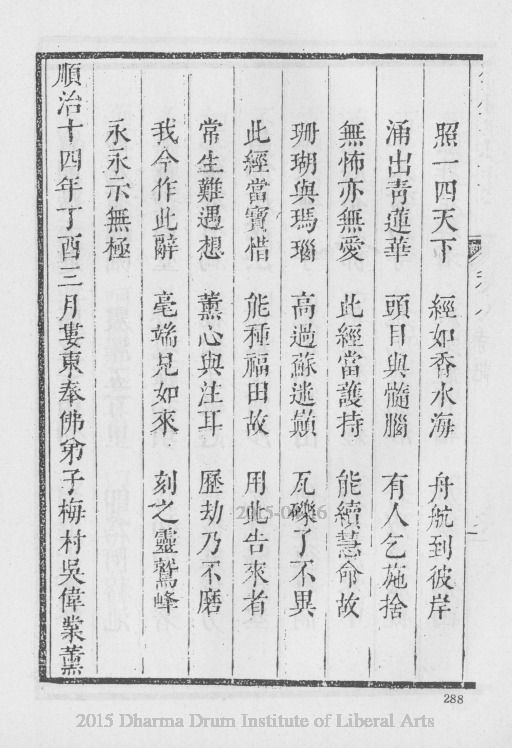 照一四天下　經如香水海　舟航到彼岸
涌出青蓮華　頭目與髓腦　有人乞施捨
無怖亦無愛　此經當護持　能續慧命故
珊瑚與瑪瑙　高過蘇迷顛　瓦礫了不異
此經當寶惜　能種福田故　用此告來者
常生難遇想　薰心與注耳　歷劫乃不磨
我今作此辭　毫端見如來　刻之靈鷲峰
永永示無極
順治十四年丁酉三月婁東奉佛弟子梅村吳偉業薰
288
2015 Dharma Drum Institute of Liberal Arts